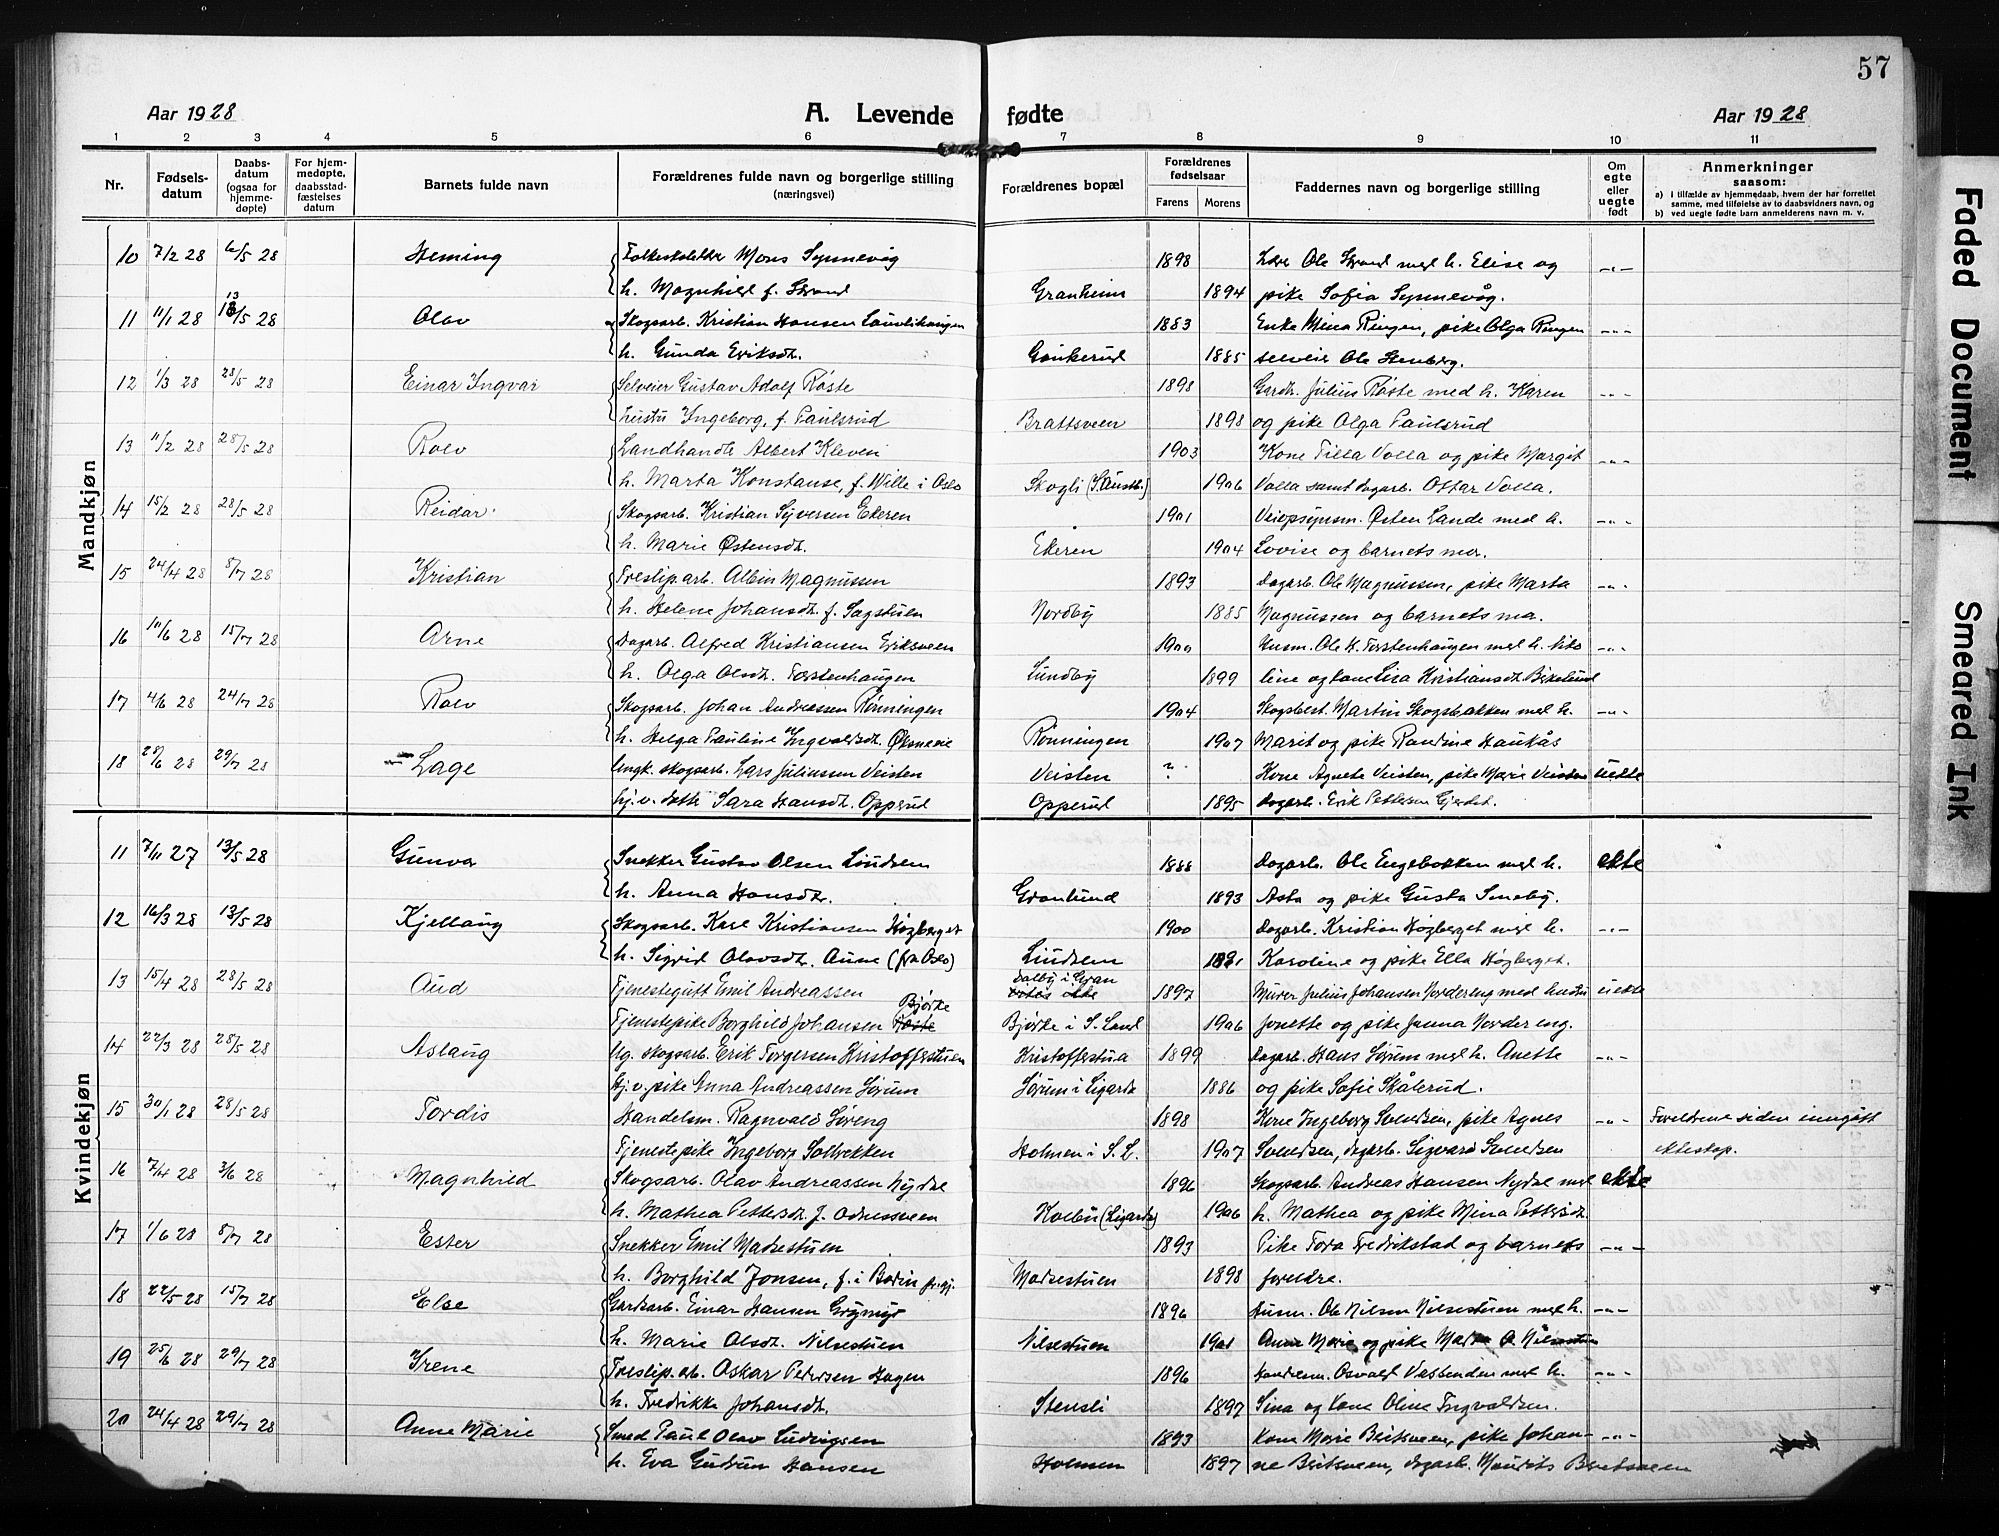 57
Aar 1928
A. Levende fødte
Aar 1928
1 2 3 4 5 6 7 8 9 10 11
Nr.
Fødsels-
datum
Daabs-
datum
(ogsaa for
hjemme-
døpte)
For hjem-
medøpte,
daabsstad-
fæstelses
datum
Barnets fulde navn
Forældrenes fulde navn og borgerlige stilling
(næringsvei)
Forældrenes bopæl
Forældrenes
fødselsaar
Farens
Morens
Faddernes navn og borgerlige stilling
Om
egte
eller
uegte
født
Anmerkninger
saasom:
a) i tilfælde av hjemmedaab, hvem der har forrettet
samme, med tilføielse av to daabsvidners navn, og
b) ved uegte fødte barn anmelderens navn m. v.
Mandkjøn
10 7/2 28 6/5 28 Heming Mons Synnevåg 1898 Lærer Ole Strand med h. Elise og -"-
h. Magnhild f. Strand Granheim 1894 pike Sofia Synnevåg.
11 11/1 28 13/5 28 Olav Skogsarb. Kristian Hansen Lauvlihaugen 1883 Enke Mina Ringen, pike Olga Ringen -"-
h. Gunda Eriksdt. Gaukerud 1885 selveier Ole Stenberg.
12 1/3 28 28/5 28 Einar Ingvar Selveier Gustav Adolf Røste 1898 Gardb. Julius Røste med h. Karen -"-
hustru Ingeborg, f. Paulsrud Brattsveen 1898 og pike Olga Paulsrud
13 11/2 28 28/5 28 Rolv Landhandler Albert Kleven 1903 Kone Tilla Volla og pike Margit -"-
h. Marta Konstanse, f. Wille i Oslo Skogli 1906 Volla samt dagarb. Ottar Volla.
14 15/2 28 28/5 28 Reidar Skogsarb. Kristian Syversen Ekeren 1901 Veiopsynsm. Østen Lande med h. -"-
h. Marie Østensdt. Ekeren 1904 Lovise og barnets mor.
15 24/4 28 8/7 28 Kristian Treslip.arb. Albin Magnussen 1893 Dagarb. Ole Magnussen, pike Marta -"-
h. Helene Johansdt. f. Sagstuen Nordby 1885 Magnussen og barnets mor.
16 11/6 28 15/7 28 Arne Dagarb. Alfred Kristiansen Eriksveen 1900 Husm. Ole K. Torstenhaugen med h. -"-
h. Olga Olsdt. Torstenhaugen Lundby 1899 line og kone Lisa Kristiansdt. Birkelund
17 4/6 28 24/7 28 Rolv Skogsarb. Johan Andreassen Rønningen 1904 Skogbest. Martin Skogsbakken med h. -"-
h. Helga Pauline Ingvaldsdt. Rønningen 1907 Marit og pike Randine Haukås
18 28/6 28 29/7 28 Lage Ungk. skogsarb. Lars Juliussen Veisten Veisten ? Kone Agnete Veisten, pike Marie Veisten uekte
hj.v. datter Sara Hansdt. Opperud Opperud 1895 dagarb. Erik Pettersen Gjerdet.
Kvindekjøn
11 7/11 27 13/5 28 Gunvor Snekker Gustav Olsen Lindsem 1888 Dagarb. Ole Engebakken med h. ekte
h. Anna Hansdt. Granlund 1893 Asta og pike Gusta Smeby.
12 16/3 28 13/5 28 Kjellaug Skogsarb. Karl Kristiansen Høgberget 1900 Dagarb. Kristian Høgberget med h. -"-
h. Sigrid Olavsdt. Aune (fra Oslo) Lindsem Karoline og pike Ella Høgberget.
13 15/4 28 28/5 28 Aud Tjenestegutt Emil Andreassen Dalby i Gran 1897 Murer Julius Johansen Nordereng med hustru uekte
Tjenestepike Borghild Johansen Bjørke Bjørke i S. Land 1906 Jonette og pike Jenna Nordereng.
14 22/3 28 28/5 28 Aslaug Ug. skogsarb. Erik Torgersen Kristoffestuen Kristoffestua 1899 Dagarb. Hans Sørum med h. Anette -"-
Hj.v. pike Anna Andreassen Sørum Sørum i Ligarda 1886 og pike Sofie Skålerud.
15 30/1 28 28/5 28 Tordis Handelsm. Ragnvald Søreng 1898 Kone Ingeborg Svendsen, pike Agnes -"- Foreldrene siden inngått
Tjenestepike Ingeborg Solbekken Holmen i S. L. 1907 Svendsen, dagarb. Sigvard Svendsen ekteskap.
16 7/4 28 3/6 28 Magnhild Skogsarb. Olav Andreassen Nydal 1896 Skogsarb. Andreas Hansen Nydal med ekte
h. Mathea Pettersdt. f. Odnessveen Kolbu (Ligarda) 1906 h. Mathea og pike Mina Pettersdt.
17 1/6 28 8/7 28 Ester Snekker Emil Madsestuen 1893 Pike Tora Fredrikstad og barnets -"-
h. Borghild Jonsen, f. i Bodin Madsestuen 1898 foreldre.
18 22/5 28 15/7 28 Else Gardsarb. Einar Hansen Grymyr 1896 Husm. Ole Nilsen Nilsestuen med h. -"-
h. Marie Olsdt. Nilsestuen Nilsestuen 1901 Anne Marie og pike Marta O. Nilsestuen
19 25/6 28 29/7 28 Irene Treslip.arb. Oskar Pedersen Hagen 1896 Handelsm. Osvald Vassenden med h. -"-
h. Fredrikke Johansdt. Stensli 1897 Sina og kone Oline Ingvaldsen.
20 24/4 28 29/7 28 Anne Marie Smed Paul Olav Ludvigsen 1893 Kone Marie Beitsveen, pike Johan- -"-
h. Eva Gudrun Hansen Holmen 1897 ne Beitsveen, dagarb. Maurits Beitsveen
Faded Document
Smeared Ink